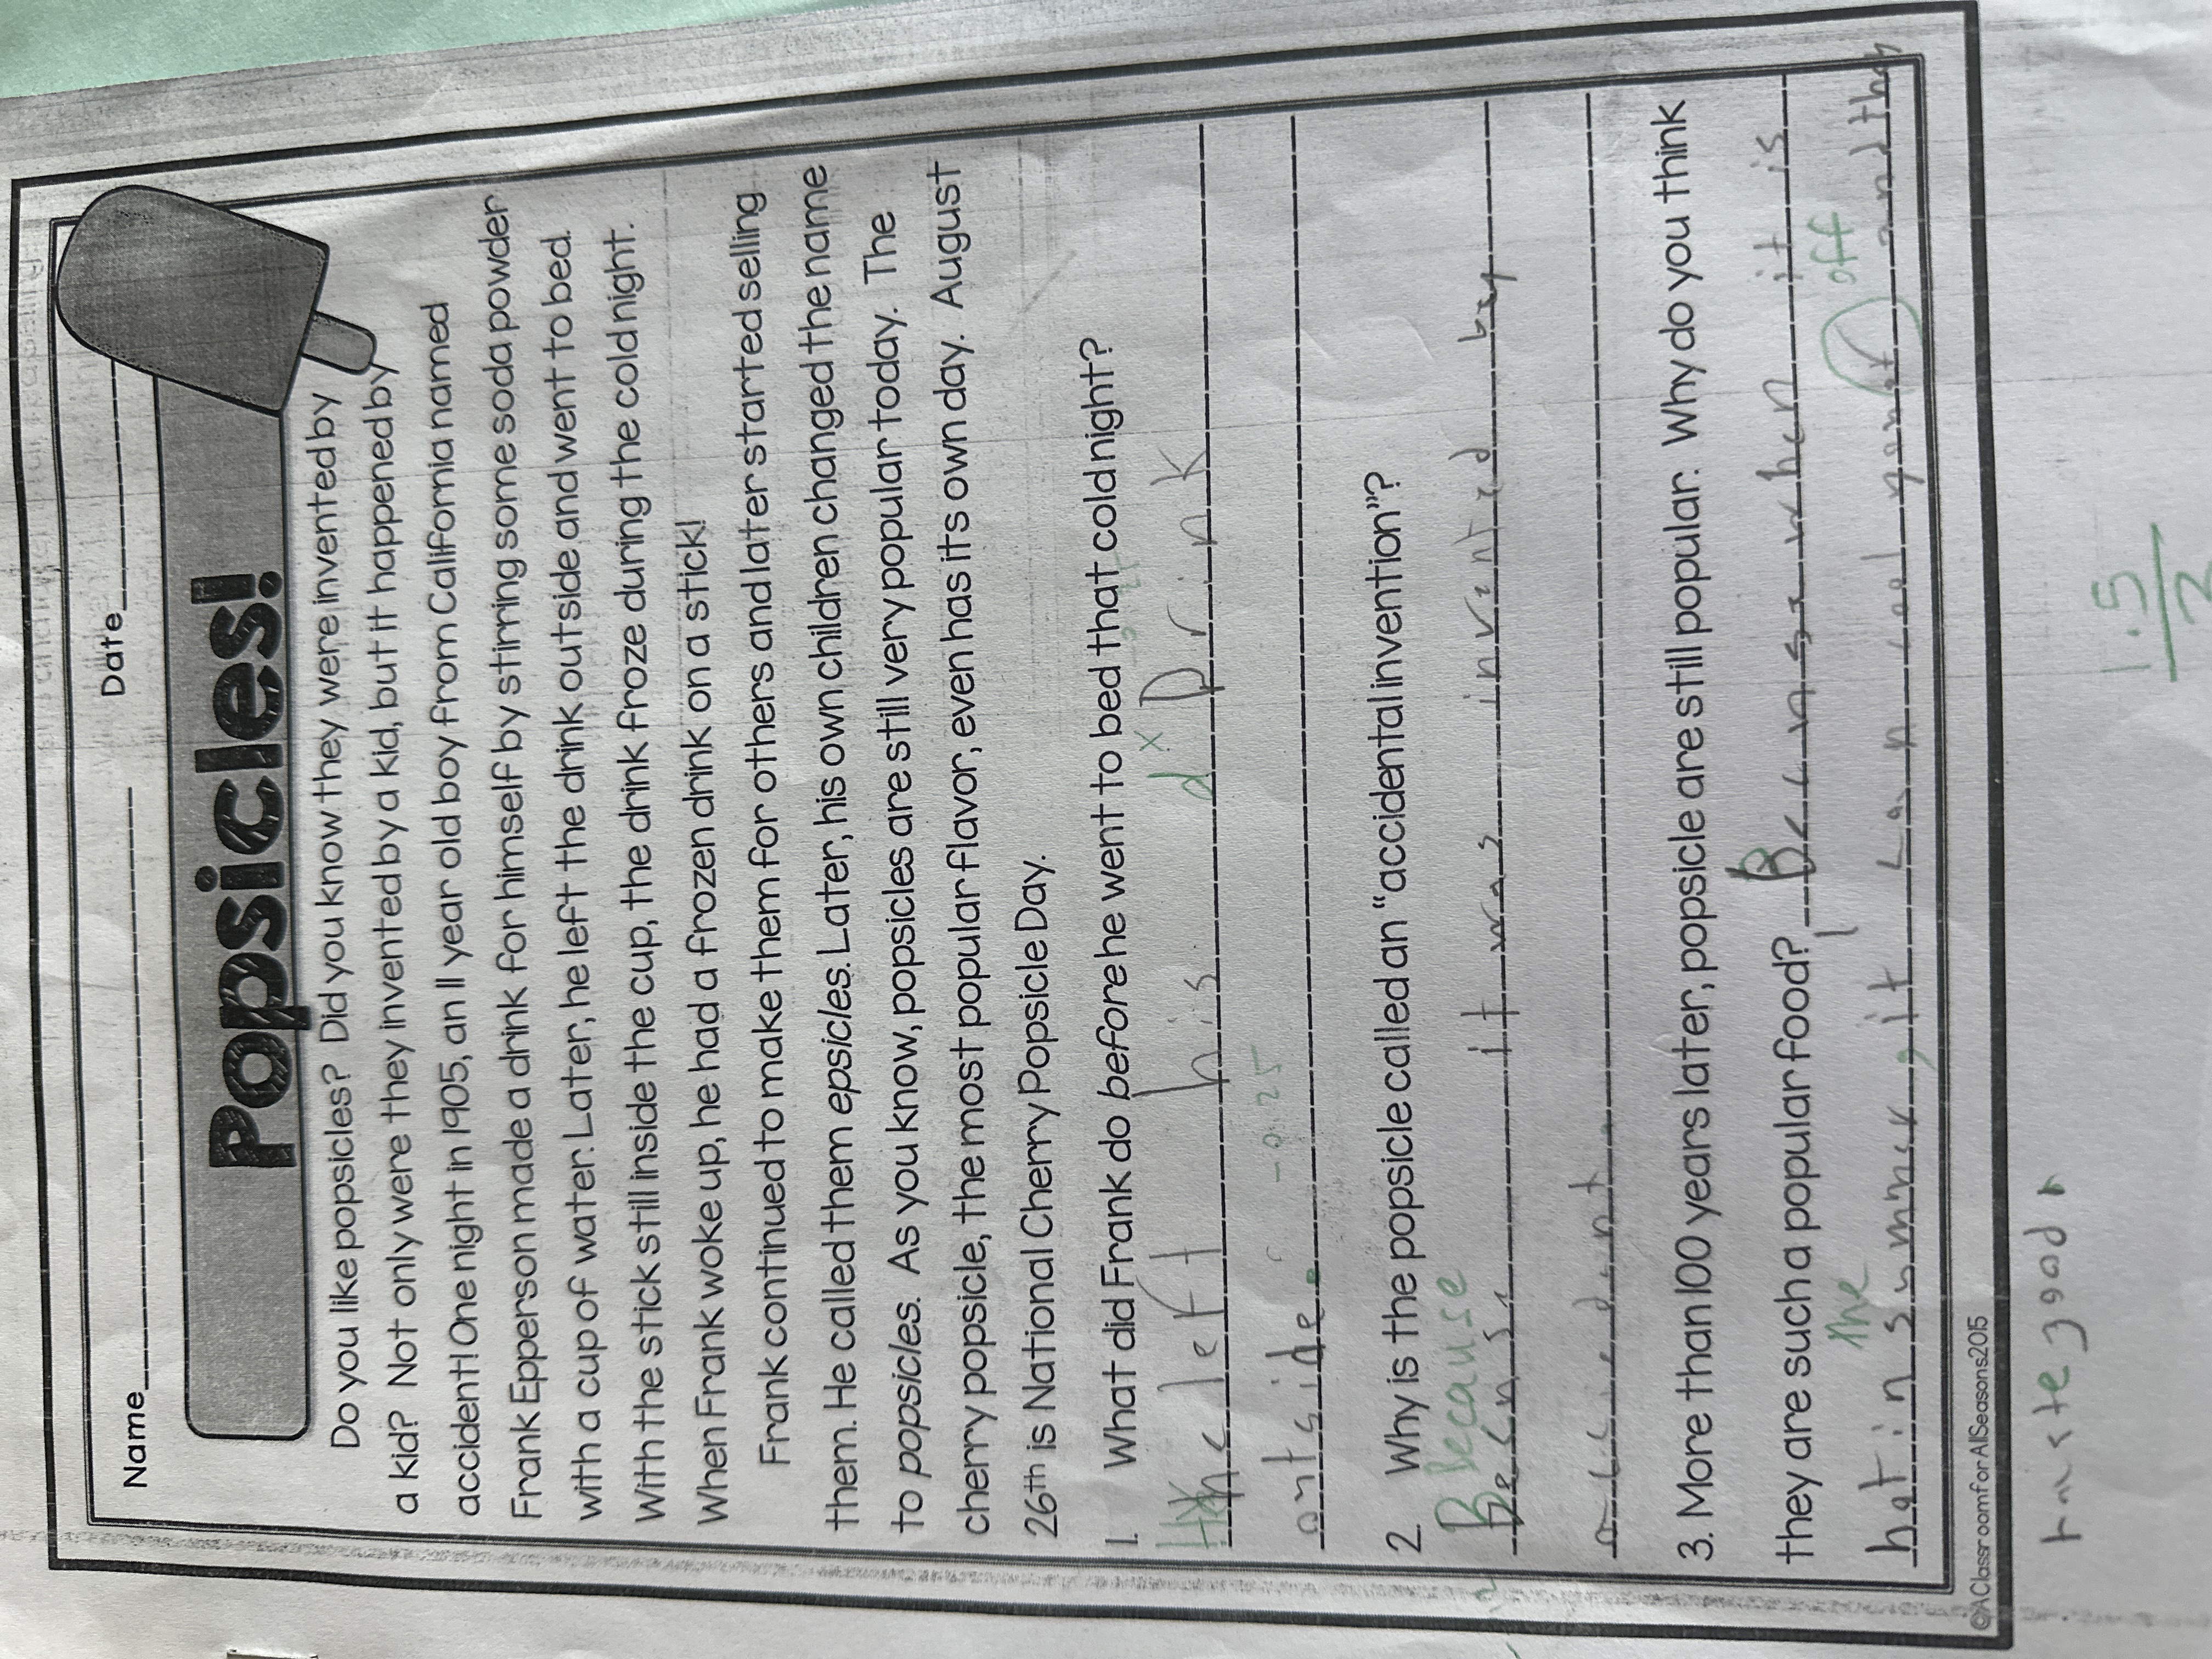 Name Date
Popsicles!
Do you like popsicles? Did you know they were invented by
a kid? Not only were they invented by a kid, but it happened by
accident! One night in 1905, an 11 year old boy from California named
Frank Epperson made a drink for himself by stirring some soda powder
with a cup of water. Later, he left the drink outside and went to bed.
With the stick still inside the cup, the drink froze during the cold night.
When Frank woke up, he had a frozen drink on a stick!
Frank continued to make them for others and later started selling
them. He called them epsicles. Later, his own children changed the name
to popsicles. As you know, popsicles are still very popular today. The
cherry popsicle, the most popular flavor, even has its own day. August
26th is National Cherry Popsicle Day.
1. What did Frank do before he went to bed that cold night?
d x
he left his Drink
outside. -0.25
2 Why is the popsicle called an “accidental invention”?
Because
Because it was invented by
accident.
3. More than 100 years later, popsicle are still popular. Why do you think
they are such a popular food? Because when it is
the off
hot in summer, it can cool you and they
©AClassroomforAllSeasons2015
taste good
1.5
2